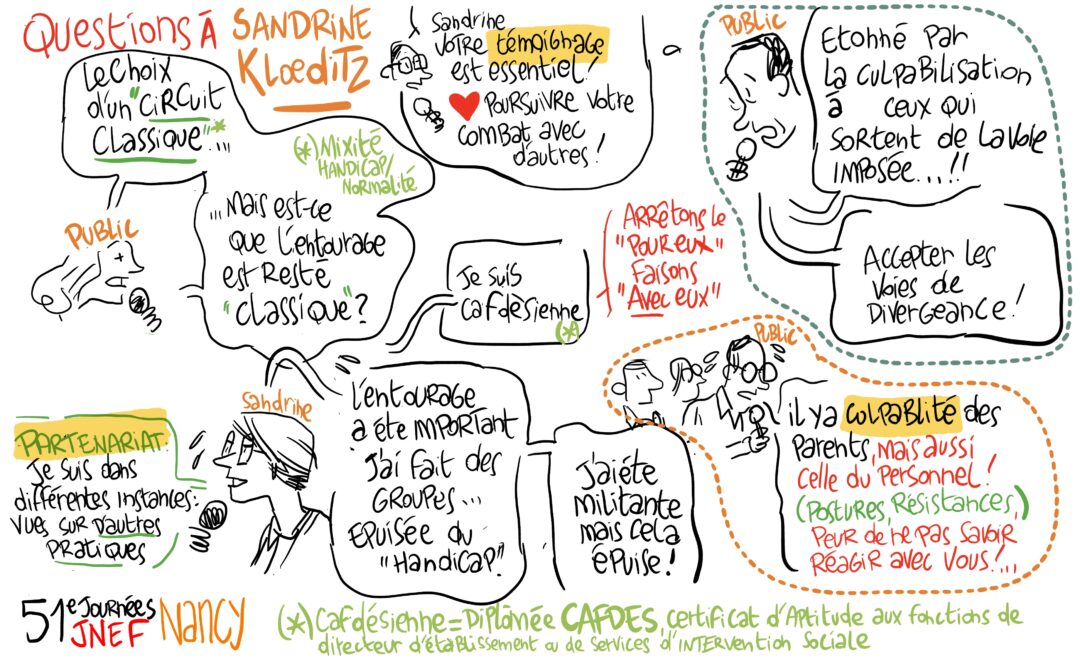 Questions à SANDRINE
KLœDITZ
Le choix
d'un "CIRCUIT
CLASSIQUE"*...
(*) Mixité
HANDICAP/
NORMALITÉ
PUBLIC
...Mais est-ce
que l'entourage
est resté
"classique"?
Sandrine
votre témoignage
est essentiel!
poursuivre votre
combat avec
d'autres!
PUBLIC
Etonné par
la culpabilisation
à ceux qui
sortent de la voie
imposée...!!
Accepter les
voies de
Divergeance!
Je suis
cafdésienne
(*)
Arrêtons le
"Pour eux"
Faisons
"Avec eux"
PUBLIC
il y a culpablité des
Parents, mais aussi
celle du Personnel!
(Postures, Résistances,)
Peur de ne pas savoir
réagir avec vous!...
PARTENARIAT:
Je suis dans
différentes instances:
vues sur d'autres
pratiques
Sandrine
L'entourage
a éte IMPORTANT
J'ai fait des
GROUPES...
Epuisée du
"Handicap".
J'ai éte
militante
mais cela
épuise!
51e Journées
JNEF Nancy
(*) Cafdésienne = Diplômée CAFDES, certificat d'Aptitude aux fonctions de
directeur d'établissement ou de services d'intervention Sociale